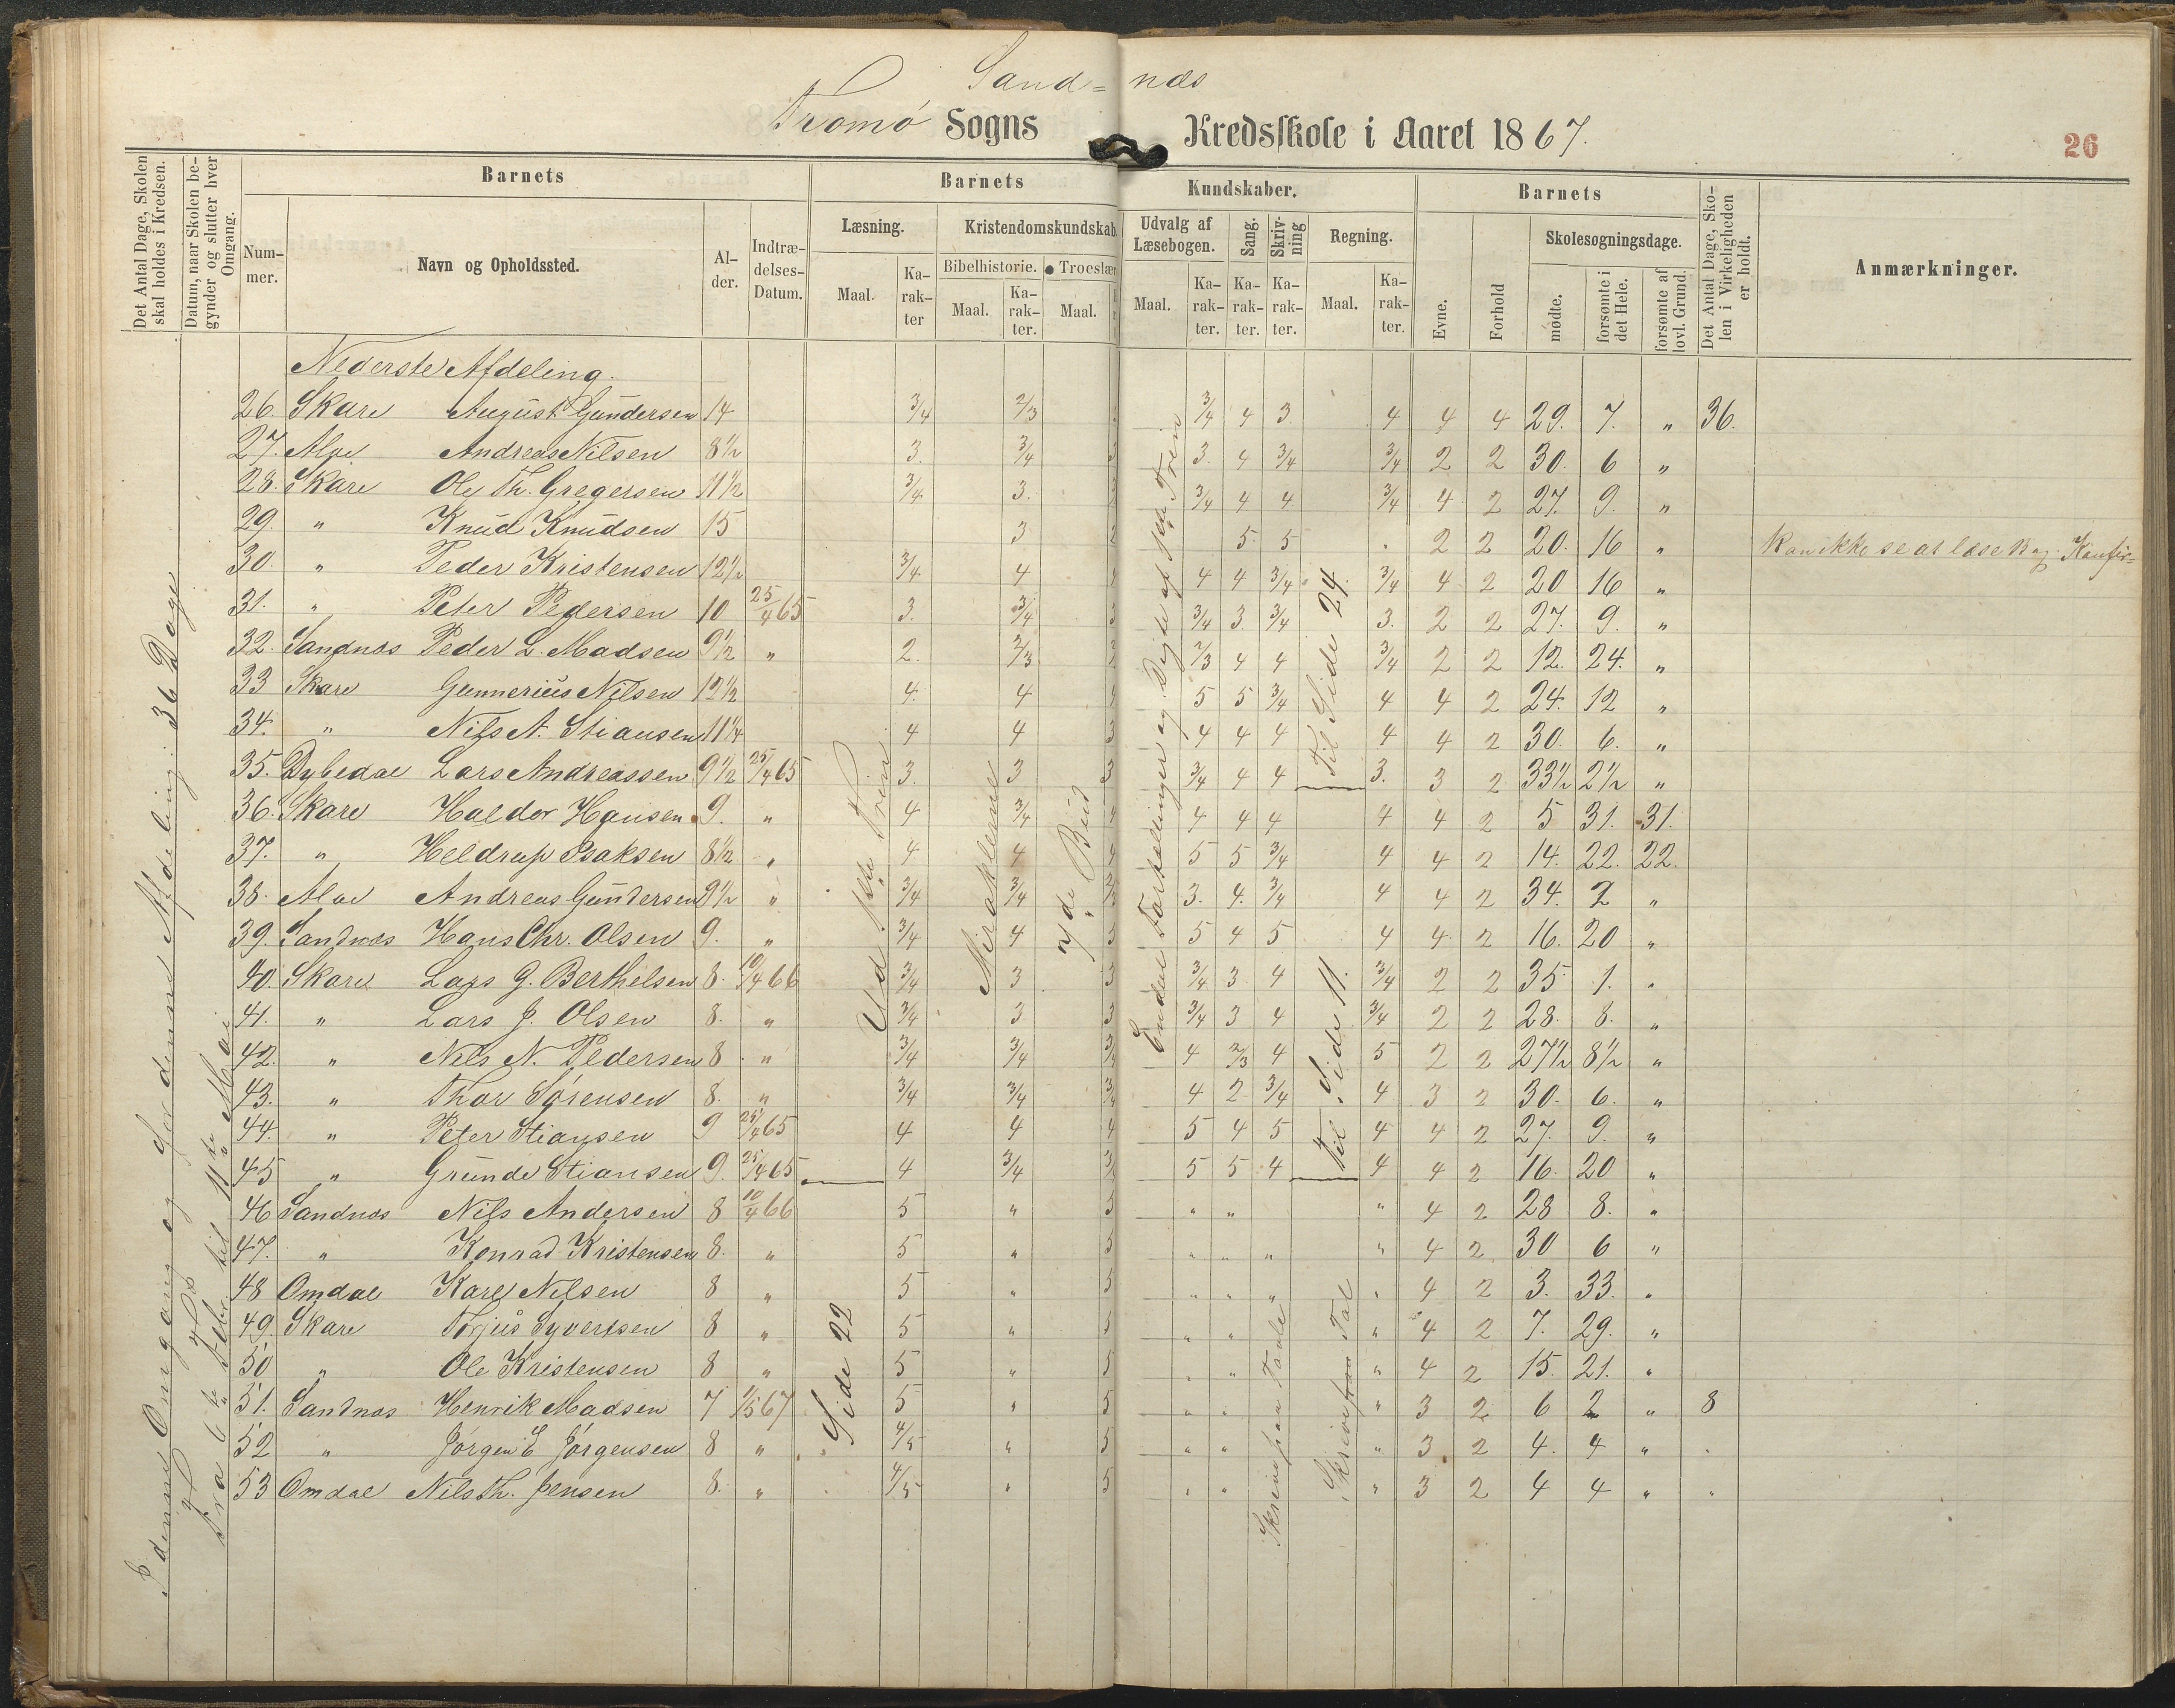 Sand= næs
Tromø Sogns Kredsskole i Aaret 1867.
26
Det Antal Dage, Skolen skal holdes i Kredsen.
Datum, naar Skolen begynder og slutter hver Omgang.
Barnets
Barnets Kundskaber.
Barnets
Det Antal Dage, Skolen i Virkeligheden er holdt.
Anmærkninger.
Nummer.
Navn og Opholdssted.
Alder.
Indtrædelses-Datum.
Læsning.
Kristendomskundskab
Udvalg af Læsebogen.
Sang.
Skrivning
Regning.
Evne.
Forhold
Skolesøgningsdage.
Bibelhistorie.
Troeslær
Maal. Karakter Maal. Karakter. Maal. Maal. Karakter. Karakter. Karakter. Maal. Karakter.
mødte.
forsømte i det Hele.
forsømte af lovl. Grund.
Nederste Afdeling.
26. Skare August Gundersen 14 3/4 2/3 3/4 4 3. 4 4 4 29. 7. " 36.
27. Alve Andreas Nilsen 8½ 3. 3/4 3 3. 4 3/4 3/4 2 2 30. 6 "
28. Skare Ole Th. Gregersen 11½ 3/4 3. 3/4 4 4 3/4 4 2 27. 9. "
29. " Knud Knudsen 15 3 2 5 5 2 2 20. 16 " Kan ikke se at læse Bog. Konfir=
30. " Peder Kristensen 12½ 3/4 4 4 4 4 3/4 3/4 4 2 20 16 "
31. " Peter Pedersen 10 25/4 65 3. 3/4 3 3/4 3. 3/4 3. 2 2 27. 9. "
32. Sandnæs Peder L. Madsen 9½ " 2. 2/3 2/3 4 4 3/4 2 2 12. 24. "
33 Skare Gunnerius Nilsen 12½ 4. 4 4 5 5 3/4 4 4 2 24. 12 "
34. " Nils A. Stiansen 11¼ 4 4 3 4 4 4 4 4 2 30. 6. "
35. Dybedal Lars Andreassen 9½ 25/4 65 3. 3 3 3/4 4 4 3. 3 2 33½ 2½ "
36. Skare Haldor Hansen 9. " 4 3/4 4 4 4 4 4 4 2 5 31. 31.
37. " Heldrup Isaksen 8½ " 4 4 4 5 5 3/4 4 4 2 14. 22. 22.
38. Alve Andreas Gundersen 9½ " 3/4 3/4 3. 4. 3/4 4 4 2 34. 2 "
39. Sandnæs Hans Chr. Olsen 9. " 3/4 4 3 5 4 5 4 4 2 16. 20 "
40. Skare Lars G. Berthelsen 8. 10/4 66 3/4 3 3 3/4 3 4 3/4 2 2 35. 1. "
41. " Lars J. Olsen 8. " 3/4 3 3 3/4 3 4 3/4 2 2 28. 8. "
42. " Nils N. Pedersen 8 " 3/4 3/4 3/4 4 2/3 4 5 2 2 27½ 8½ "
43. " Thor Sørensen 8. " 3/4 3/4 3/4 4 2 3/4 4 3 2 30. 6. "
44. " Peter Stiansen 9 25/4 65 4 4 4 5 4 5 4 4 2 27. 9. "
45 " Grunde Stiansen 9. 25/4 65 4 3/4 5 5 4 4 4 2 16. 20 "
46 Sandnæs Nils Andersen 8 10/4 66 5 " 5 " " " 4 2 28 8. "
47. " Konrad Kristensen 8. " 5 " 5 " " " " 4 2 30 6 "
48 Omdal Karl Nilsen 8 " 5 " 5 " " " " 4 2 3. 33. "
49. Skare Torjus Syvertsen 8 " 5 " 5 " " " 4 2 7. 29. "
50 " Ole Kristensen 8 " 5 " 5 " " " 4 2 15. 21. "
51. Sandnæs Henrik Madsen 7 1/5 67 5 " 5 " " " 3 2 6 2 " 8
52 " Jørgen E Jørgensen 8 " 4/5 " 5 " " " 3. 2 4. 4 " "
53 Omdal Nils Th. Jensen 8. " 4/5 " 5 " " " 3 2 4 4 " "
I denne Omgang og for denne Afdeling: 36 Dage
Fra 6te Febr. til 11te Mai
Ud 1ste Trin
Side 22
Miraklerne
7de Bud
Endel Fortællinger og Digte af 1ste Trin
Til Side 24.
Til Side 11.
Skrive paa Tavle
Skrive Tal